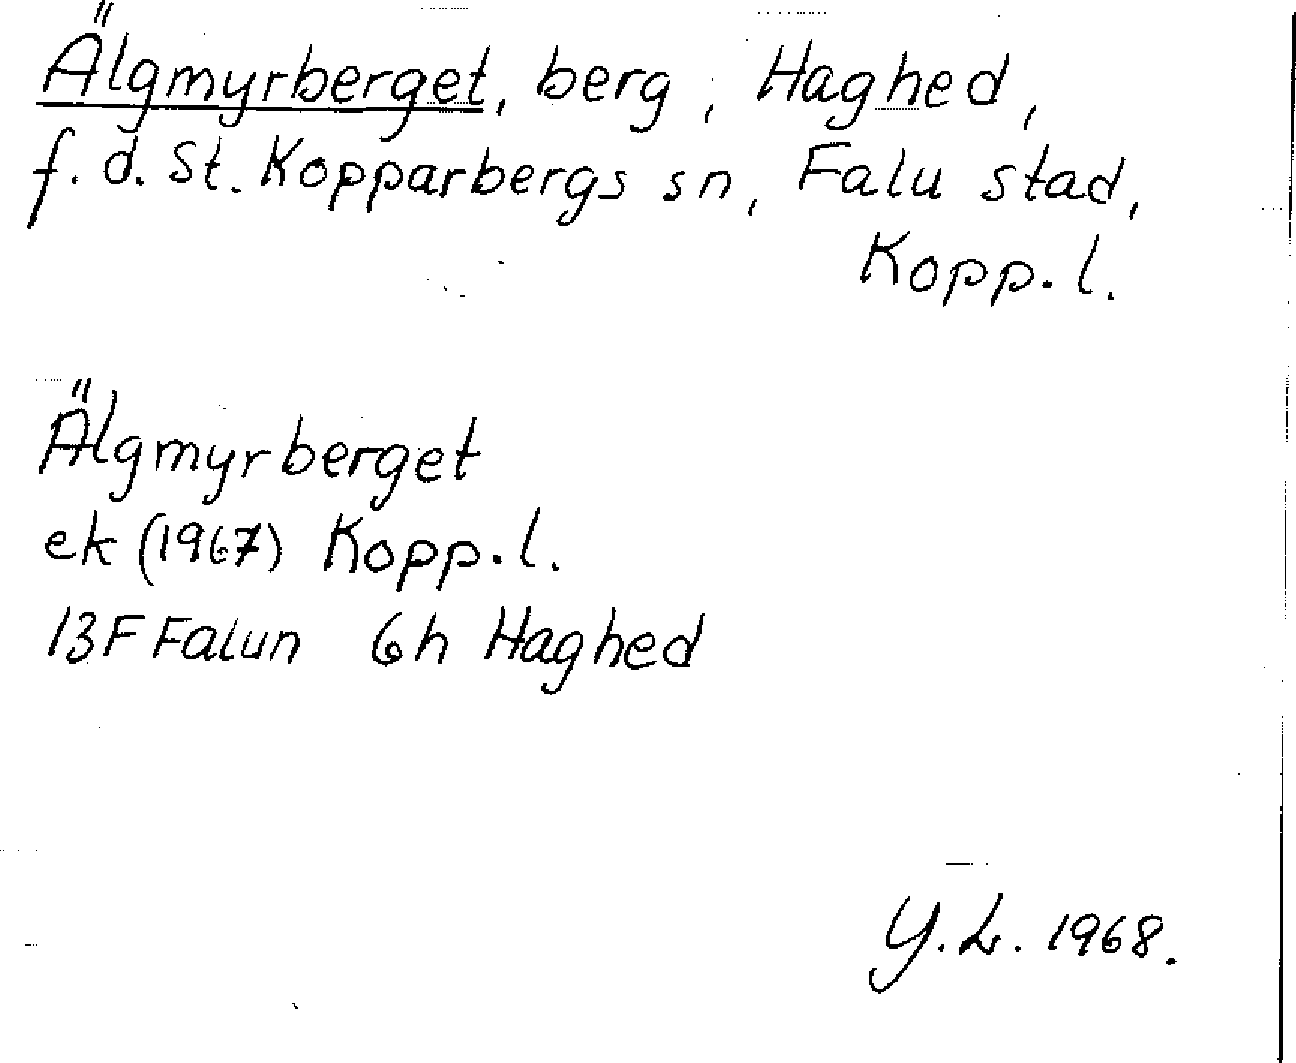 Älgmyrberget, berg, Haghed,
f.d. St. Kopparbergs sn, Falu stad,
Kopp. l.
Älgmyrberget
ek (1967) Kopp. l.
13F Falun 6h Haghed
Y.L. 1968.